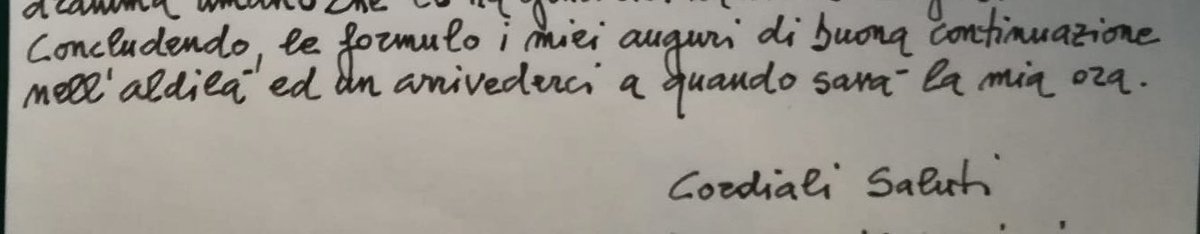 Concludendo, le formulo i miei auguri di buona continuazione
nell'aldilà ed un arrivederci a quando sarà la mia ora.
Cordiali Saluti